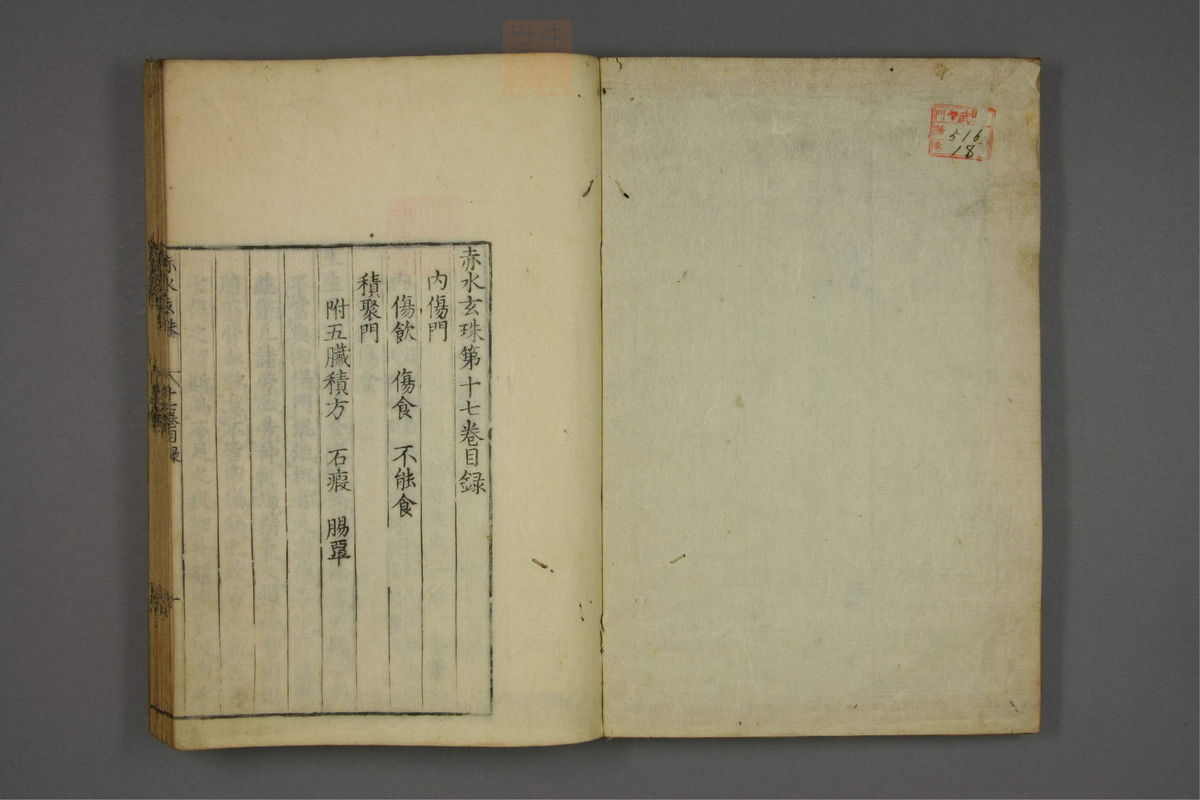 516
18
赤水玄珠第十七卷目録
内傷門
傷飲　傷食　不能食
積聚門
附五臟積方　石瘕　腸覃
赤水玄珠
十七卷目録